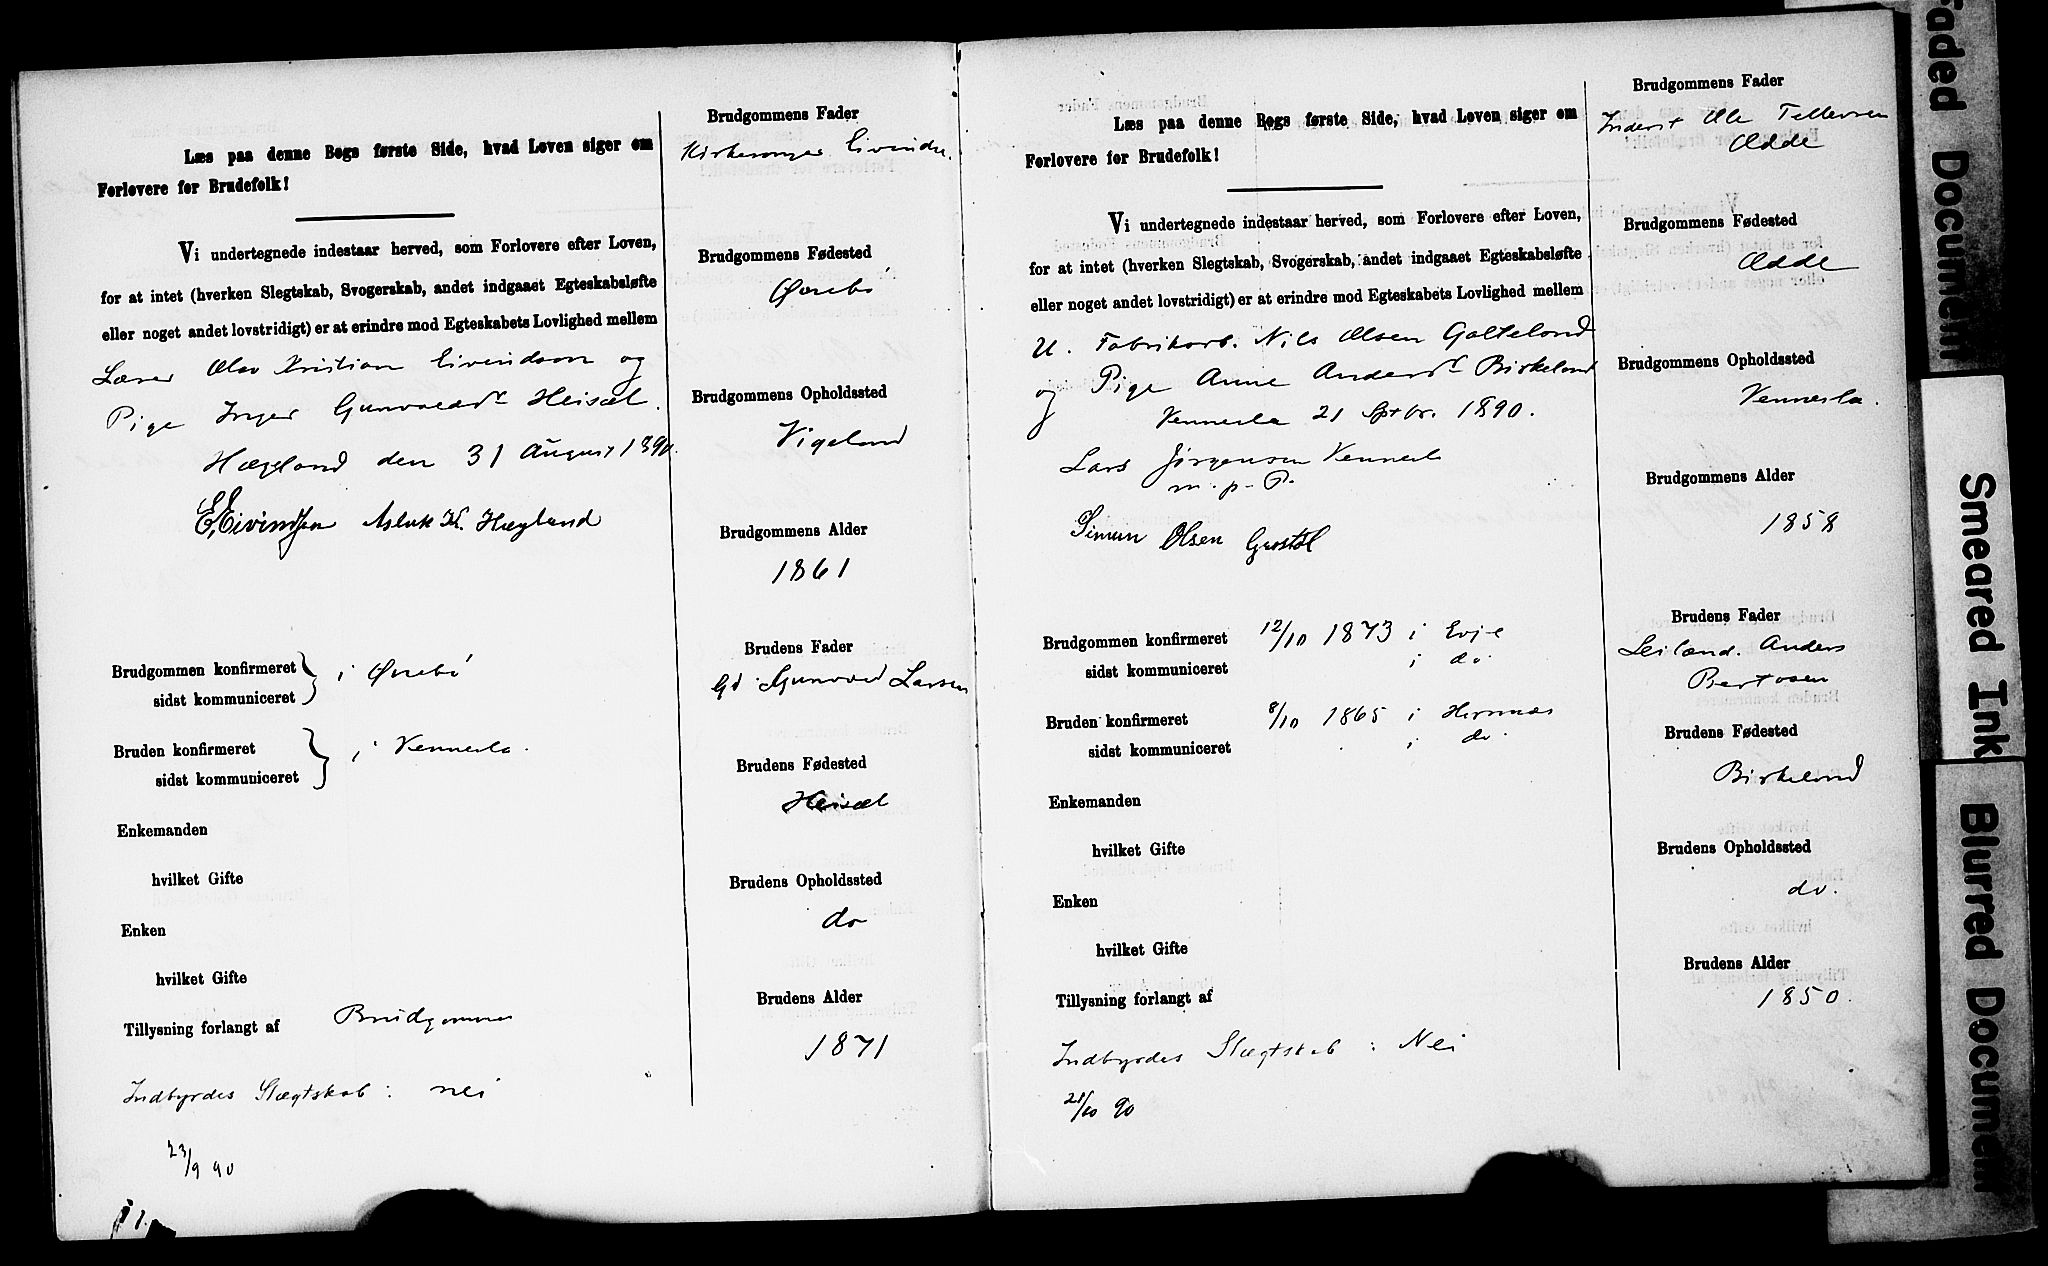 Læs paa denne Bogs første Side, hvad Loven siger om
Forlovere for Brudefolk!
Vi undertegnede indestaar herved, som Forlovere efter Loven,
for at intet (hverken Slegtskab, Svogerskab, andet indgaaet Egteskabsløfte
eller noget andet lovstridigt) er at erindre mod Egteskabets Lovlighed mellem
Lærer Olav Kristian Eivindson og
Pige Inger Gunvaldsdt Heisel.
Hægeland den 31 August 1890.
E. Eivindsen Aslak K. Hægland
Brudgommen konfirmeret
sidst kommuniceret
i Øvrebø
Bruden konfirmeret
sidst kommuniceret
i Vennesla.
Enkemanden
hvilket Gifte
Enken
hvilket Gifte
Tillysning forlangt af Brudgommen
Indbyrdes Slægtskab: nei
23/9 90
Brudgommens Fader
Kirkesanger Eivindsen
Brudgommens Fødested
Øvrebø
Brudgommens Opholdssted
Vigeland
Brudgommens Alder
1861
Brudens Fader
Gd. Gunvald Larsen
Brudens Fødested
Heisel
Brudens Opholdssted
do
Brudens Alder
1871
Læs paa denne Bogs første Side, hvad Loven siger om
Forlovere for Brudefolk!
Vi undertegnede indestaar herved, som Forlovere efter Loven,
for at intet (hverken Slegtskab, Svogerskab, andet indgaaet Egteskabsløfte
eller noget andet lovstridigt) er at erindre mod Egteskabets Lovlighed mellem
U. Fabrikarb. Nils Olsen Galteland
og Pige Anne Andersdt Birkeland
Vennesla 21 Sptbr. 1890.
Lars Jørgensen Vennesla
m. p. P.
Simun Olsen
Brudgommen konfirmeret 12/10 1873 i Evje
sidst kommuniceret i do.
Bruden konfirmeret 8/10 1865 i Hornnæs
sidst kommuniceret i do.
Enkemanden
hvilket Gifte
Enken
hvilket Gifte
Tillysning forlangt af
Indbyrdes Slægtskab: Nei
21/10 90
Brudgommens Fader
Inderst Ole Tellevsen
Odde
Brudgommens Fødested
Odde
Brudgommens Opholdssted
Vennesla.
Brudgommens Alder
1858
Brudens Fader
Leilænd. Anders
Bertosen
Brudens Fødested
Birkeland
Brudens Opholdssted
do.
Brudens Alder
1850.
Faded Document
Smeared Ink
Blurred Document